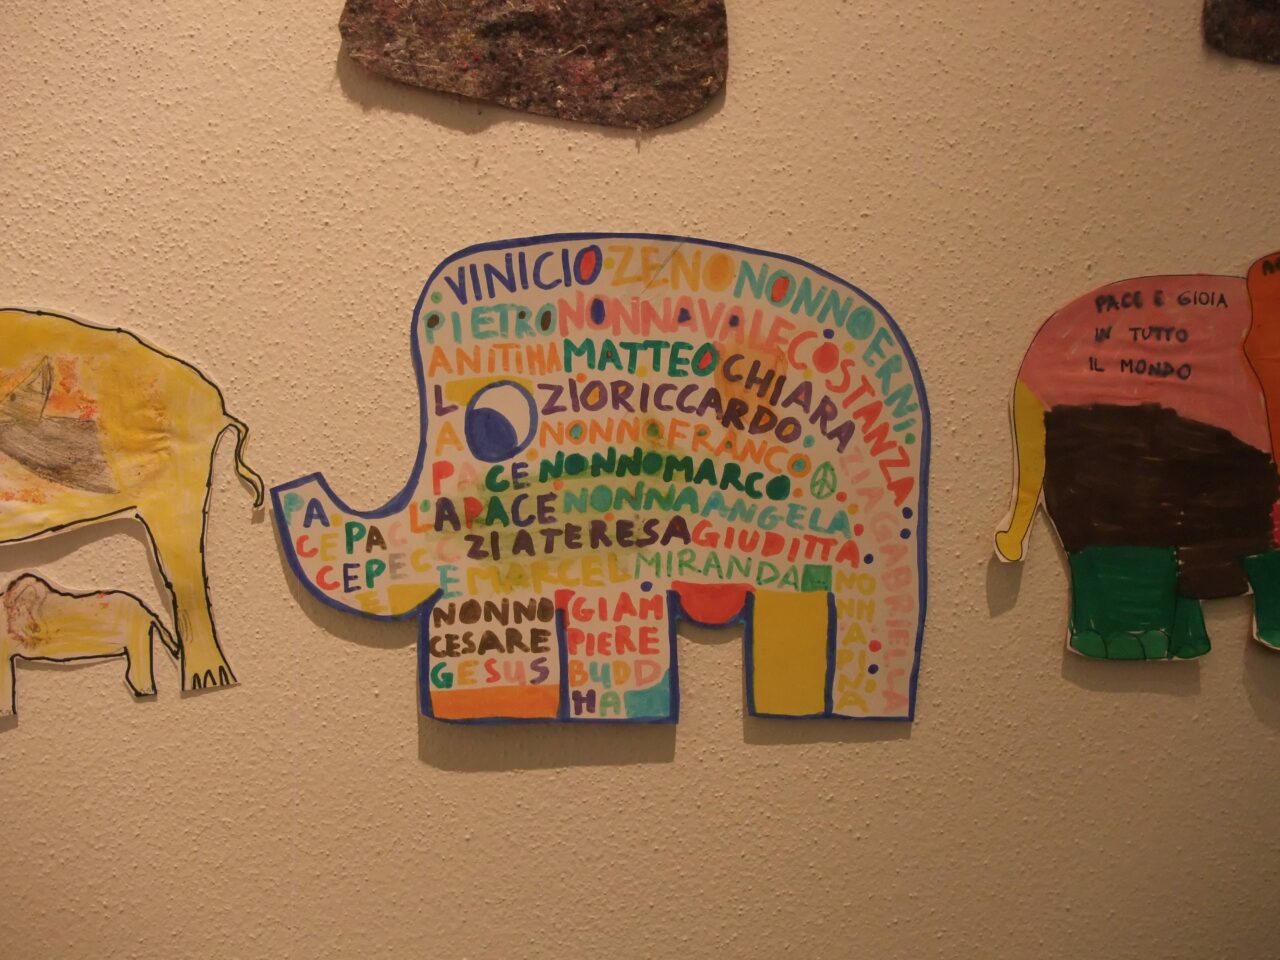 VINICIO ZENO NONNO ERNI
PIETRO NONNA VALE COSTANZA
ANITIMA MATTEO CHIARA ZIA GABRIELLA
L ZIO RICCARDO
A NONNO FRANCO
PACE NONNO MARCO
L'A PACE NONNA ANGELA
ZIA TERESA GIUDITTA
E MARCEL MIRANDA NONNA PINA
PA CE PACE
CE PA CE
CE PE CE
PE
NONNO
CESARE
GESUS
GIAM
PIERE
BUDD
HA
PACE E GIOIA
IN TUTTO
IL MONDO